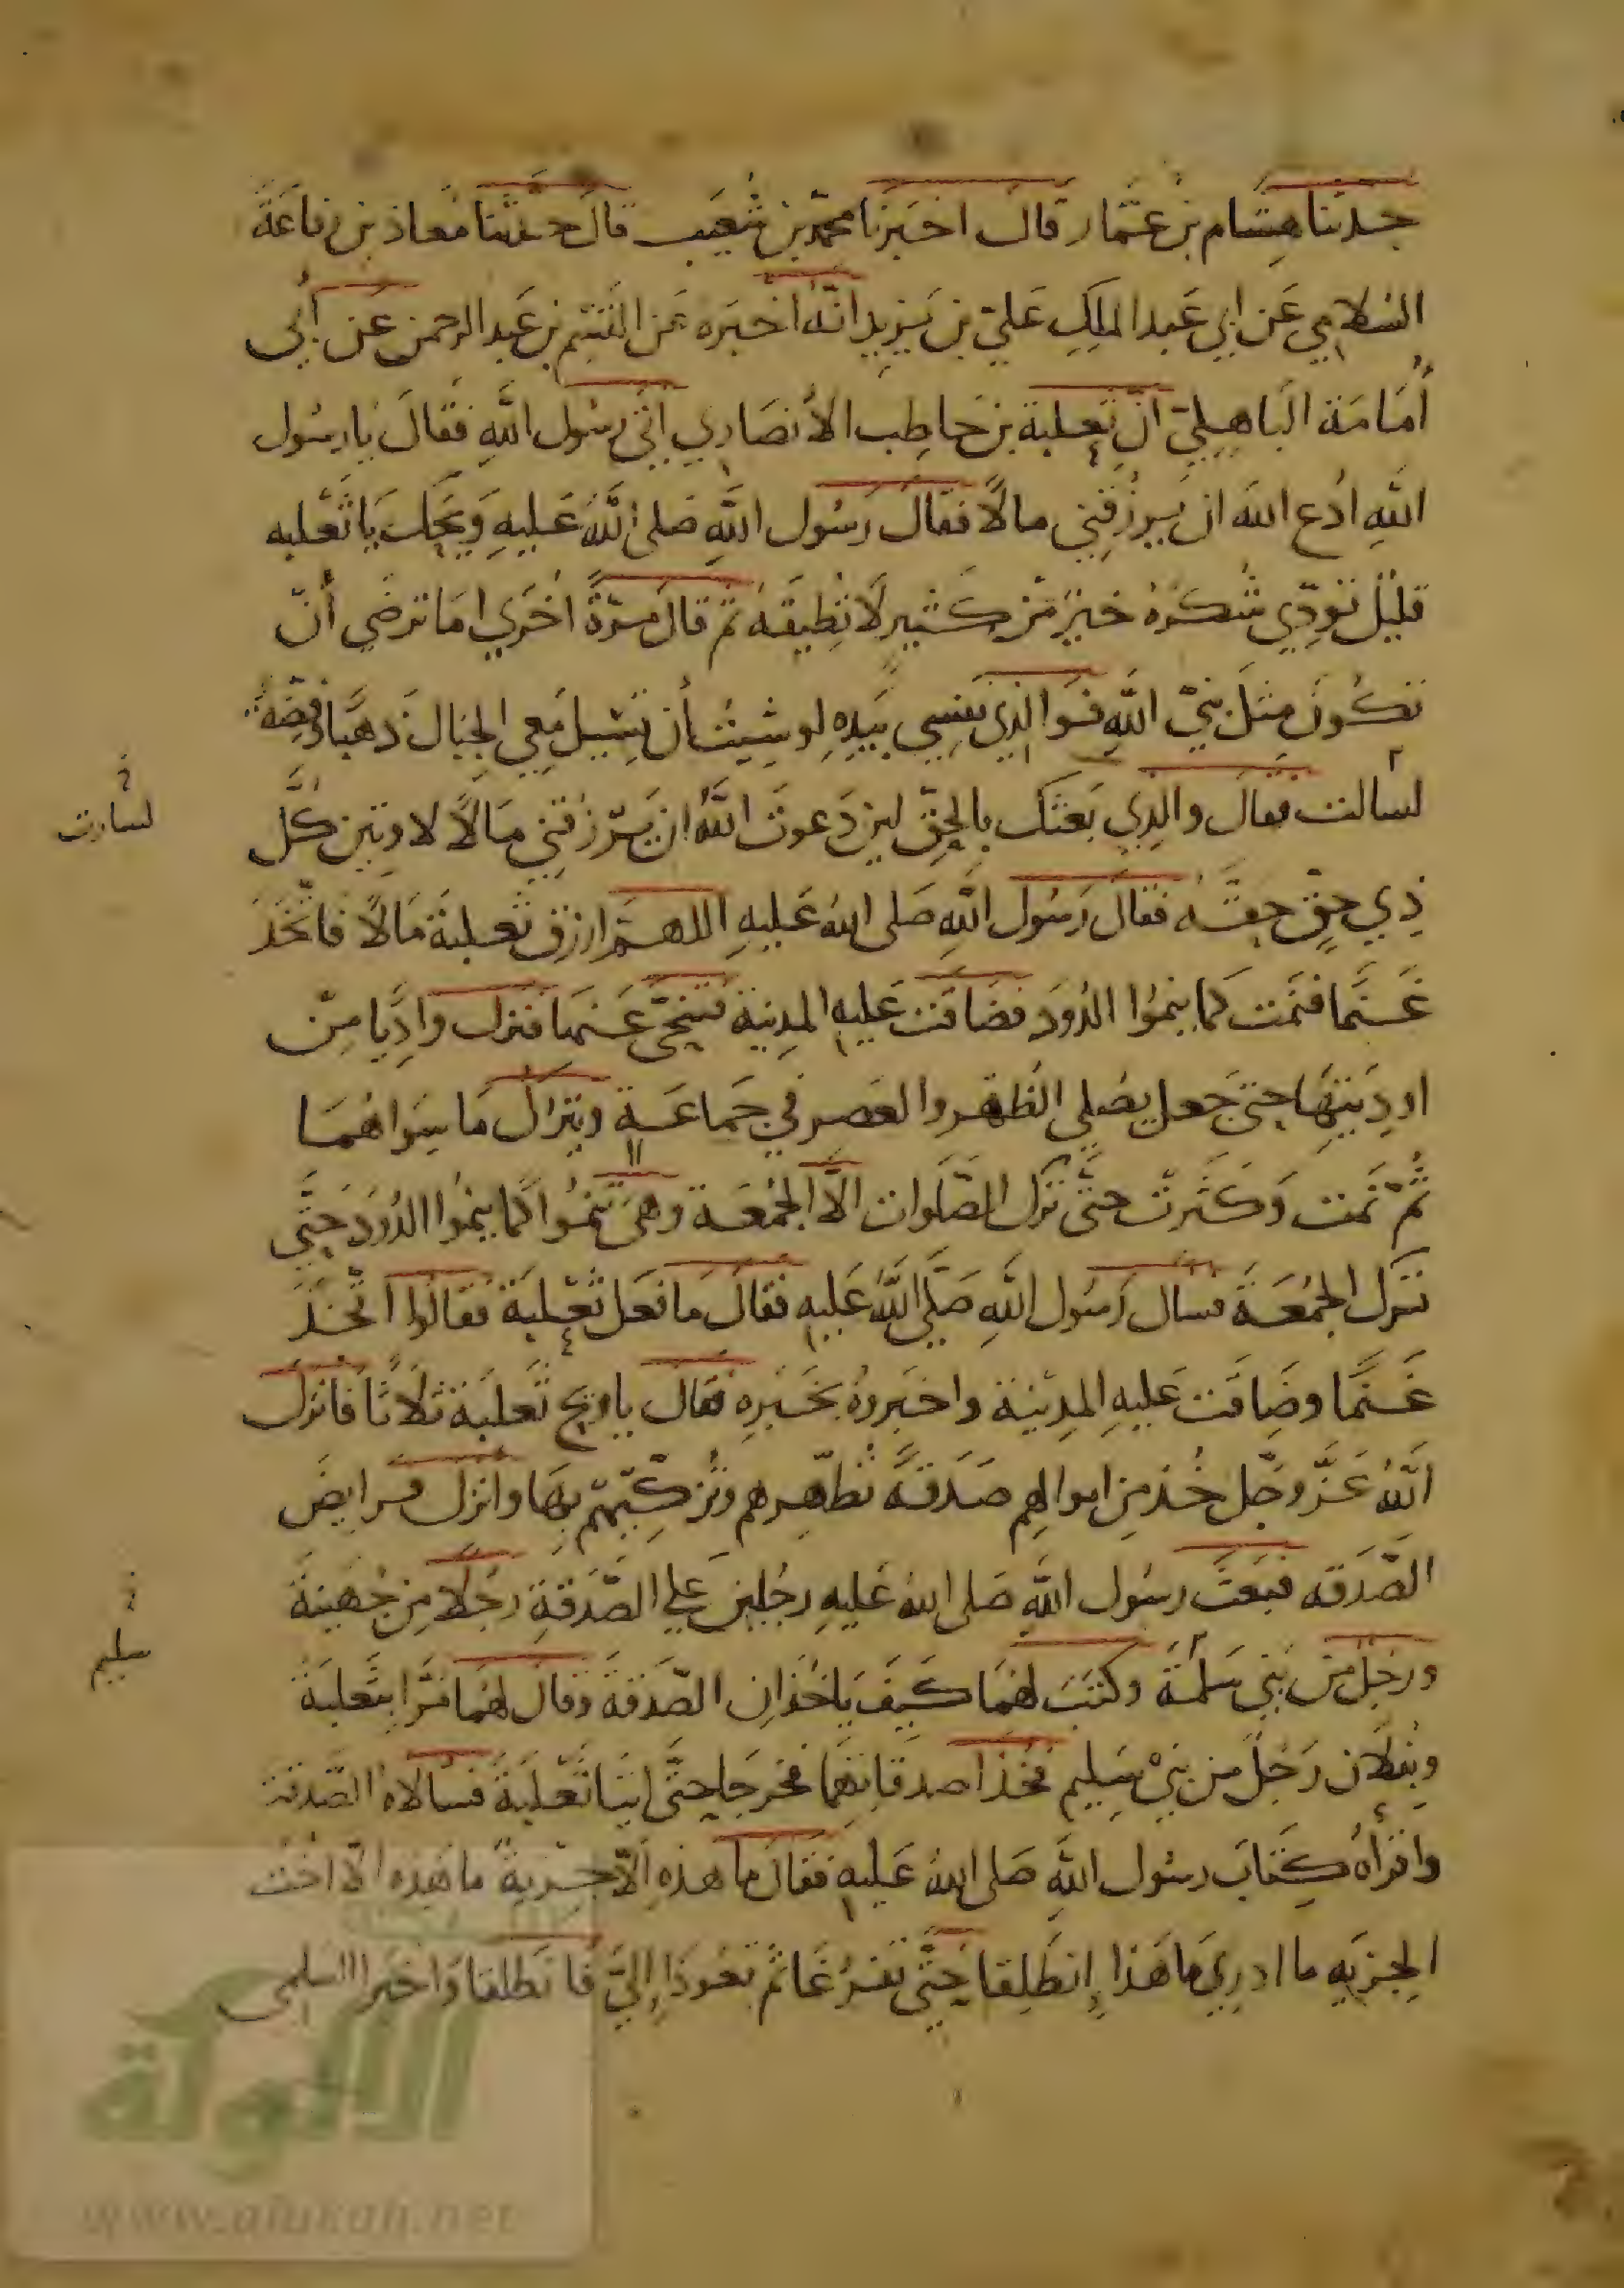 حدثنا هشام بن عمار قال اخبرنا محمد بن شعيب قال حدثنا معاذ بن رفاعة
السلامي عن ابي عبد الملك علي بن يزيد انه اخبره عن القسم بن عبد الرحمن عن أبي
أمامة الباهلي ان ثعلبة بن حاطب الأنصاري اتى رسول الله فقال يا رسول
الله ادع الله ان يرزقني مالًا فقال رسول الله صلى الله عليه ويحك يا ثعلبه
قليل تودي شكره خير من كثير لا تطيقه ثم قال مرة اخري اما ترضي أن
تكون مثل نبي الله فو الذي نفسي بيده لو شيت أن تسيل معي الجبال ذهبا وفضة
لسالت فقال والذي بعثك بالحق لين دعوت الله ان يرزقني مالًا لاوتين كل
لسارت
ذي حق حقه فقال رسول الله صلى الله عليه اللهم ارزق ثعلبة مالًا فاتخذ
غنما فنمت كما ينموا الدود فضاقت عليه المدينة فتنحى عنها فنزل واديا من
اوديتها حتى جعل يصلي الظهر والعصر في جماعة ويترك ما سواهما
ثم نمت وكثرت حتى ترك الصلوات الا الجمعة وهي تنموا كما ينموا الدود حتى
ترك الجمعة فسال رسول الله صلى الله عليه فقال ما فعل ثعلبة فقالوا اتخذ
غنما وضاقت عليه المدينة واخبروه بخبره فقال يا ويح ثعلبة ثلاثا فانزل
الله عز وجل خذ من اموالهم صدقة تطهرهم وتزكيهم بها وانزل فرايض
الصدقه فبعث رسول الله صلى الله عليه رجلين علي الصدقة رجلا من جهينة
ورجل من بني سلمة وكتب لهما كيف ياخذان الصدقة وقال لهما مرا بثعلبة
سليم
وبفلان رجل من بني سليم فخذا صدقاتهما فخرجا حتى اتيا ثعلبة فسالاه الصدقة
واقرأه كتاب رسول الله صلى الله عليه فقال ما هذه الا جزية ما هذه الا اخت
الجزيه ما ادري ما هذا إنطلقا حتى تفرغا ثم تعودا إلي فانطلقا واخبرا السلمي
الألوكة
www.alukah.net